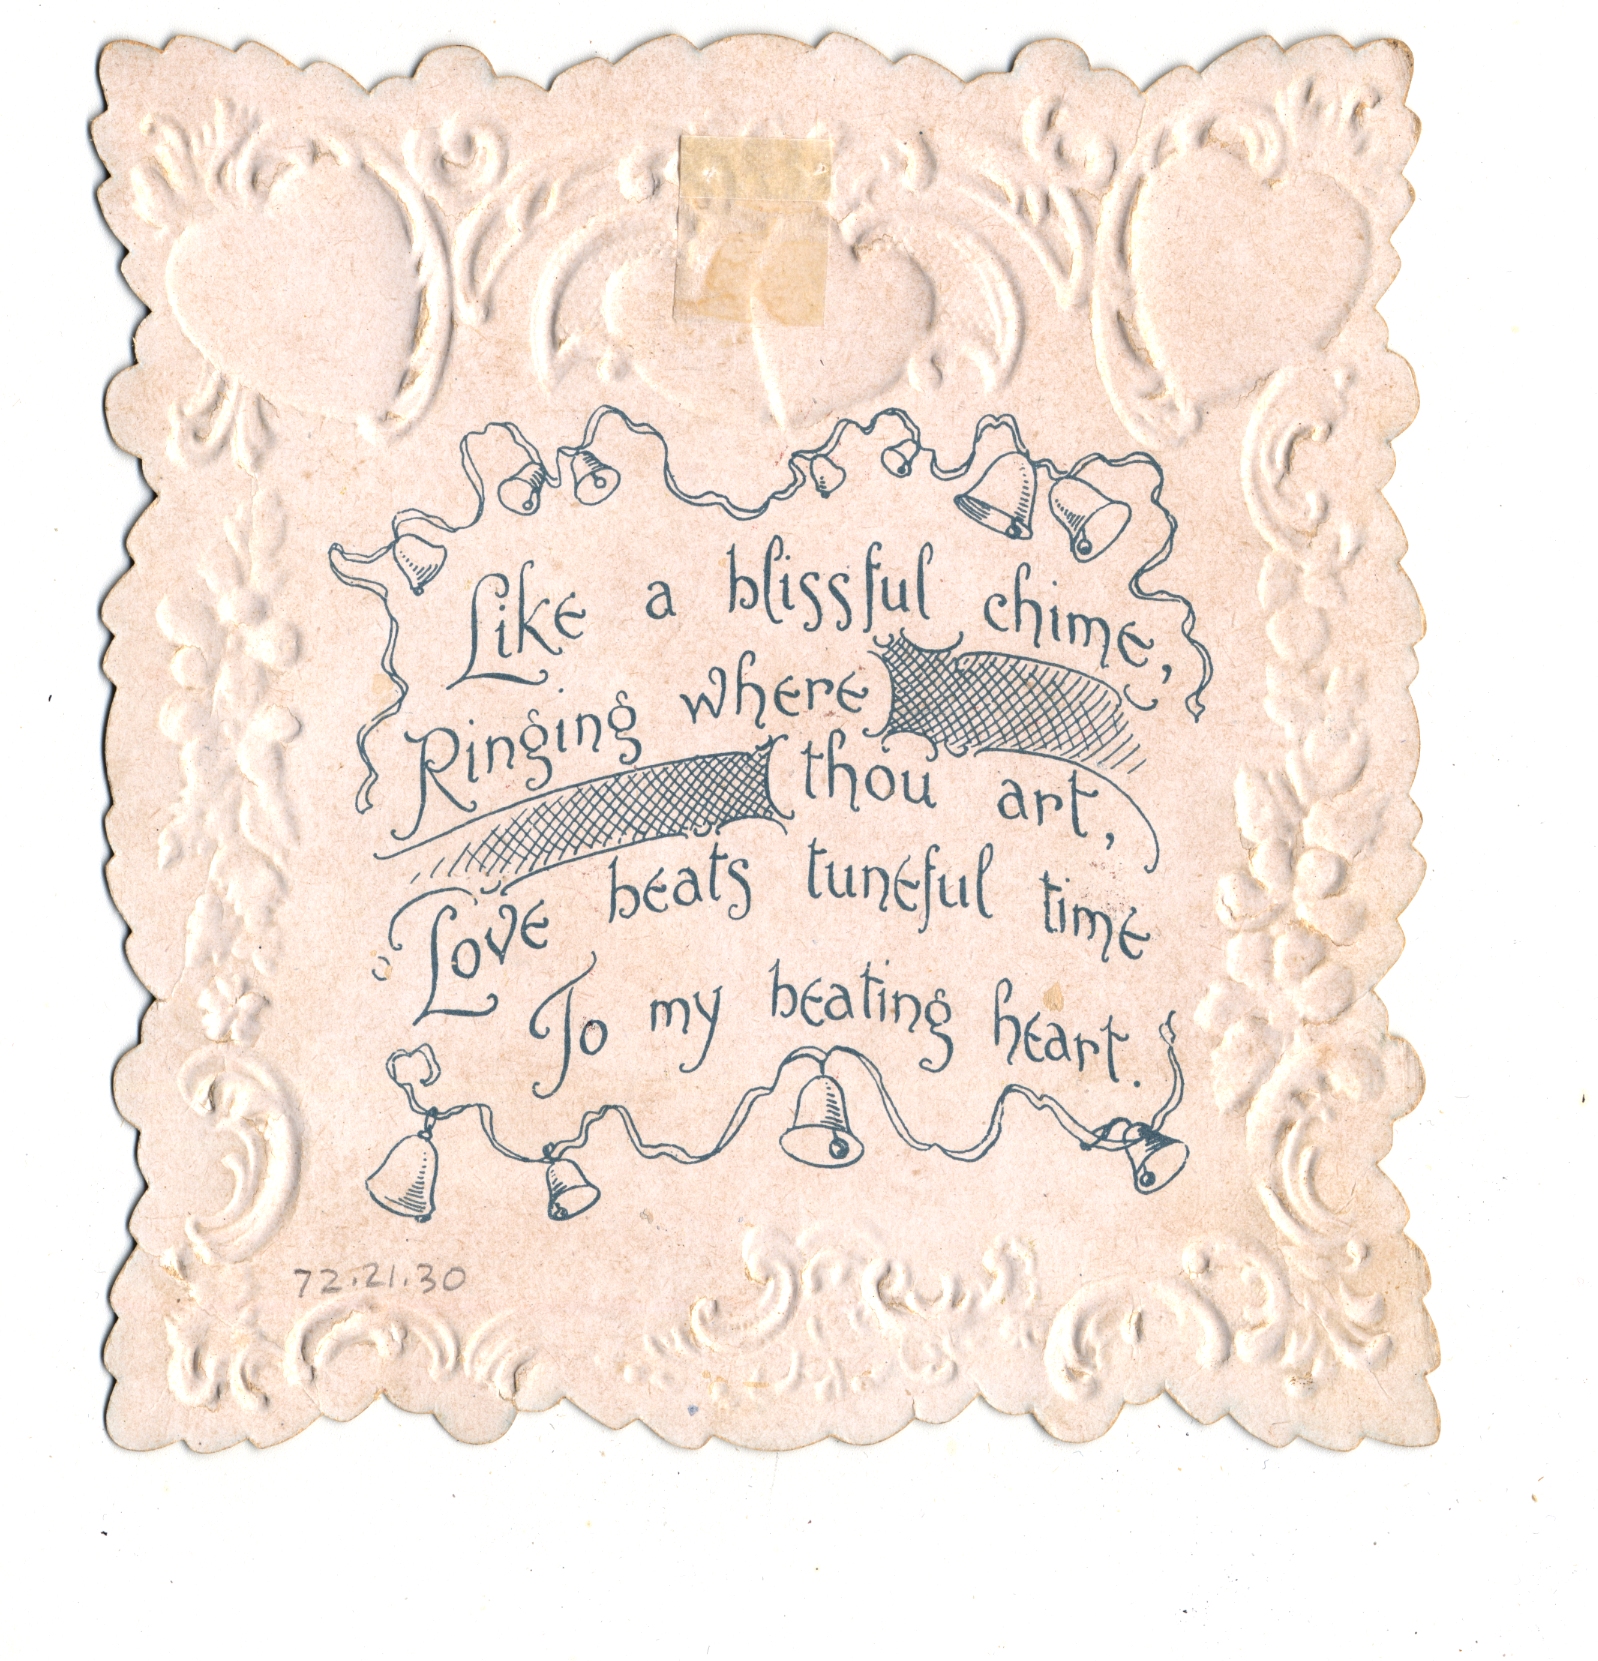 Like a blissful chime,
Ringing where
thou art,
Love beats tuneful time
To my beating heart.
72.21.30